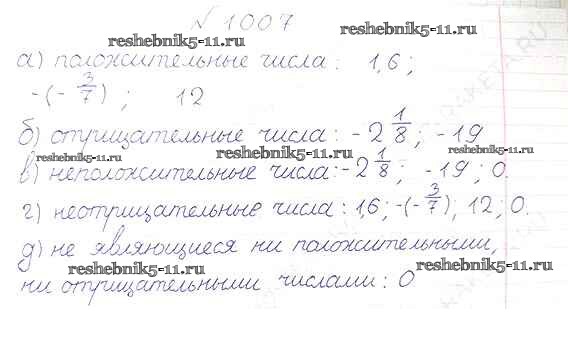 № 1007
reshebnik5-11.ru reshebnik5-11.ru
а) положительные числа: 1,6;
-(-3/7); 12
б) отрицательные числа: -2 1/8; -19
reshebnik5-11.ru reshebnik5-11.ru reshebnik5-11.ru
в) неположительные числа: -2 1/8; -19; 0.
г) неотрицательные числа: 1,6; -(-3/7); 12; 0.
д) не являющиеся ни положительными,
reshebnik5-11.ru reshebnik5-11.ru
ни отрицательными числами: 0